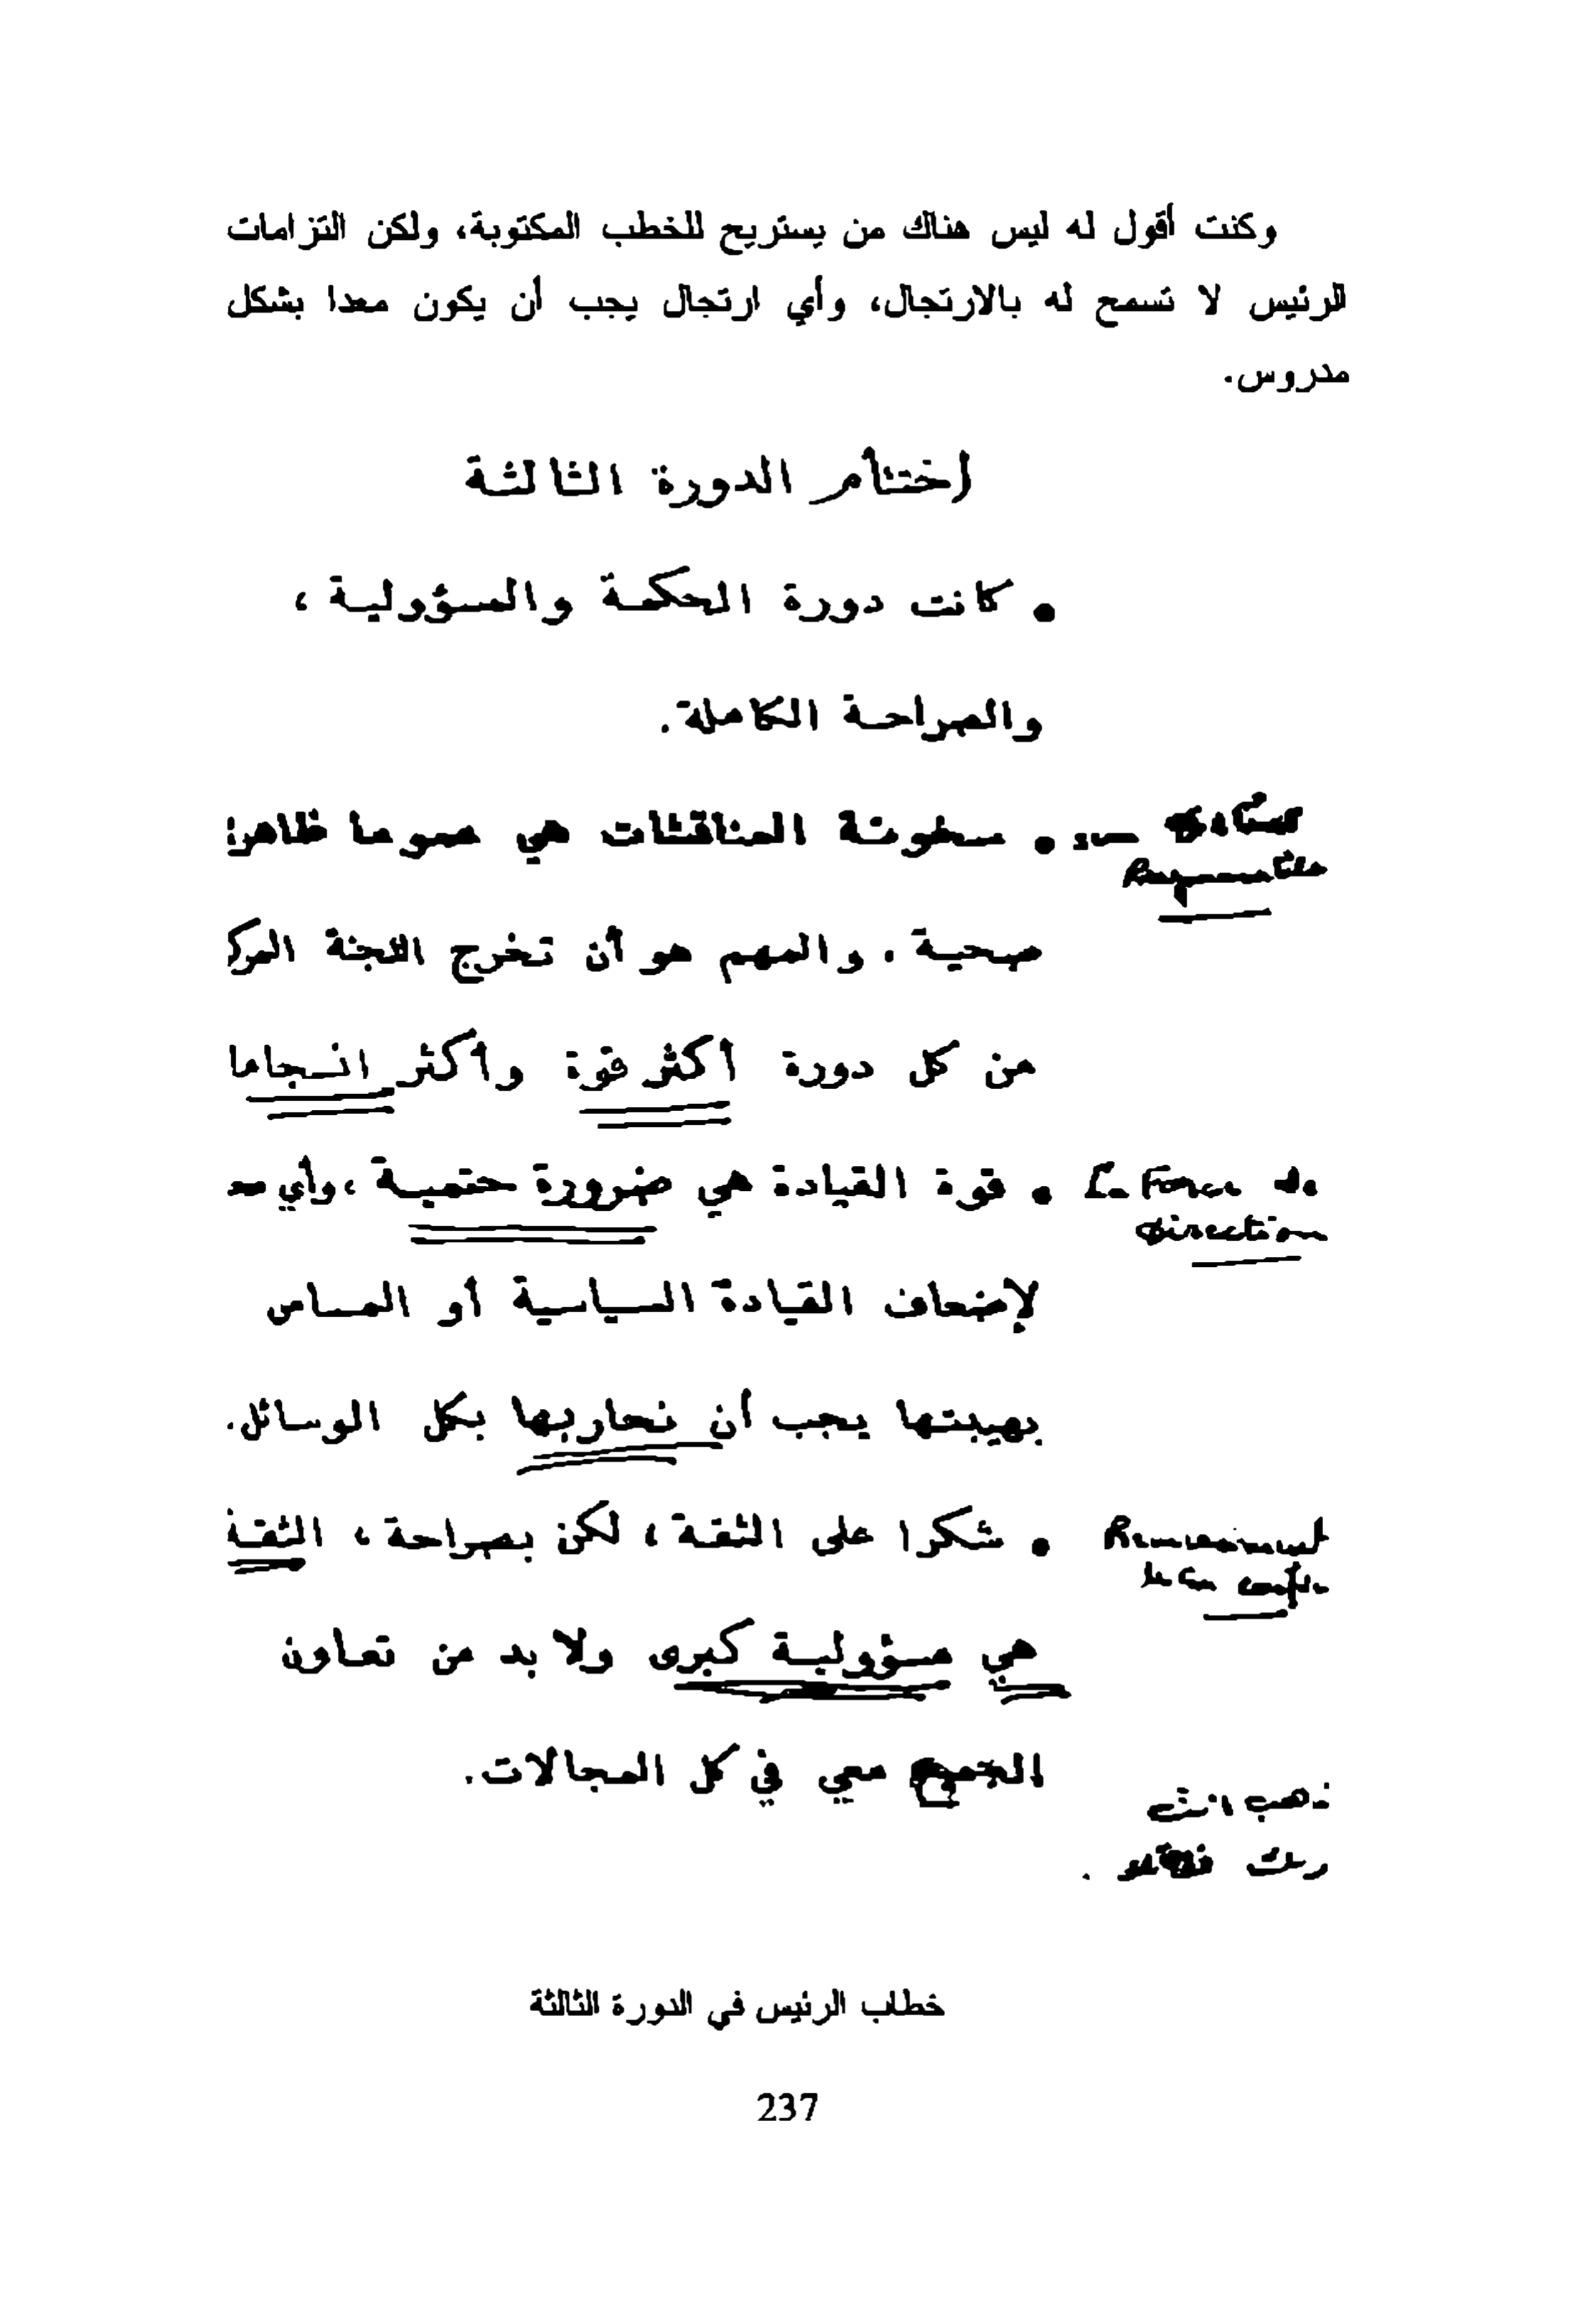 وكنت أقول له ليس هناك من يستريح للخطب المكتوبة، ولكن التزامات
الرئيس لا تسمح له بالارتجال، وأي ارتجال يجب أن يكون معدا بشكل
مدروس.
إختتام الدورة الثالثة
• كانت دورة الحكمة والمسؤولية،
والصراحة الكاملة.
• سخونة المناقشات هي عموما ظاهرة
صحية. والمهم هو أن تخرج اللجنة المركز
من كل دورة أكثر قوة وأكثر انسجاما
La Force de • قوة القيادة هي ضرورة حتمية، وأي
direction
لإضعاف القيادة السياسية أو المساس
بهيبتها يجب أن نحاربها بكل الوسائل.
• شكرا على الثقة، لكن بصراحة، الثقة
هي مسؤولية كبرى ولا بد من تعاون
الجميع معي في كل المجالات.
اذهب انت
خطاب الرئيس في الدورة الثالثة
237